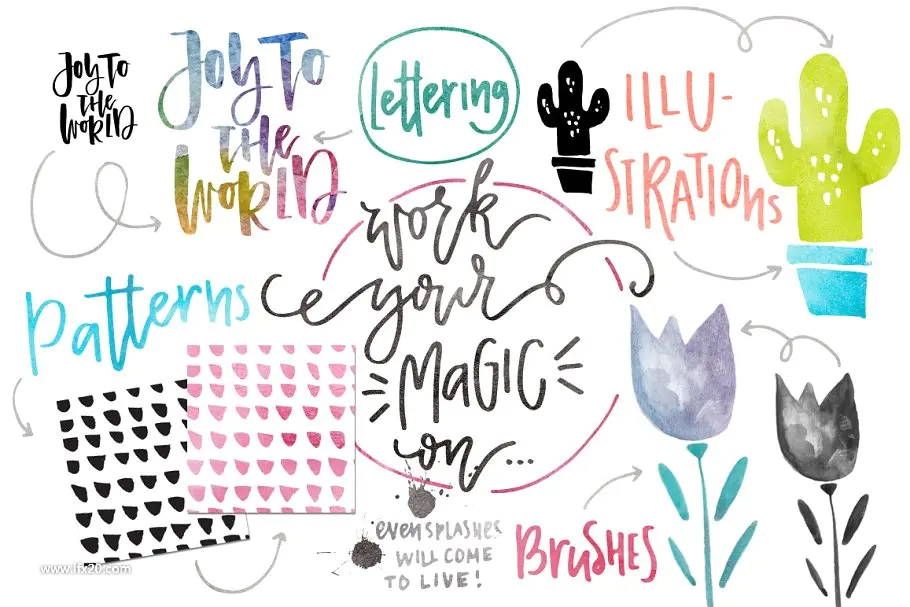 JOY TO
THE
WORLD
JOY TO
THE
WORLD
Lettering
ILLU-
STRATIONS
work
your
MAGIC
on...
Patterns
EVEN SPLASHES
WILL COME
TO LIVE!
BRUSHES
www.lfx20.com